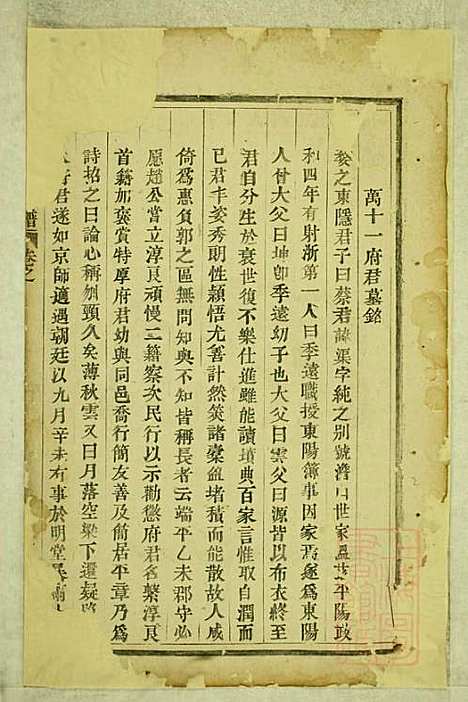 萬十一府君墓銘
婺之東隱君子曰蔡君諱渠字純之别號濳世家溫平陽政
和四年有射浙第一人曰季遠職授東陽簿事因家焉遂爲東陽
人付大父曰坤卽季遠幼子也大父曰雲父曰源皆以布衣終至
君自分生於衰世復不樂仕進雖能讀墳典百家言惟取自潤而
已君丰姿秀明性頴悟尤善計然筴諸槖益堵積而能散故人咸
倚爲惠負郭之區無問知與不知皆稱長者云端平乙未郡守必
愿趙公嘗立淳良頑慢二籍察次民行以示勸懲府君名繫淳良
首籍加褒賞特厚府君幼與同邑喬行簡友善及簡居平章乃爲
詩招之曰論心稱刎頸久矣薄秋雲又曰月落空梁下還疑
府君遂如京師適遇朝廷以九月辛未有事於明堂
譜 卷之